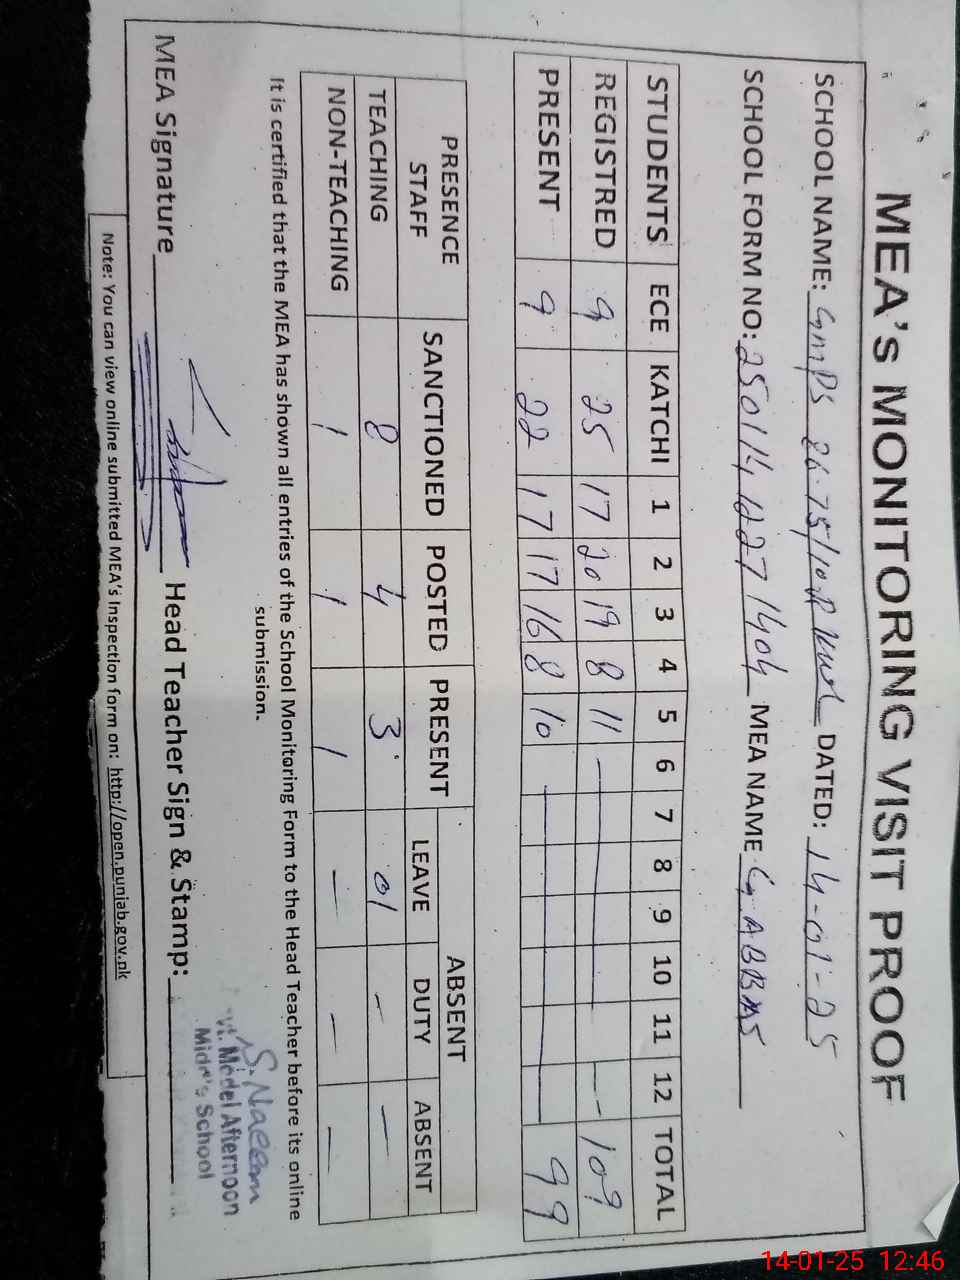 MEA's MONITORING VISIT PROOF
SCHOOL NAME: GMPS 75/10R DATED: 14-01-25
SCHOOL FORM NO: 25011412271404 MEA NAME G. ABBAS
STUDENTS ECE KATCHI 1 2 3 4 5 6 7 8 9 10 11 12 TOTAL
REGISTRED 9 25 17 20 19 8 11 — — 109
PRESENT 9 22 17 17 16 8 10 — 99
PRESENCE STAFF SANCTIONED POSTED PRESENT ABSENT
LEAVE DUTY ABSENT
TEACHING 8 4 3 01 — —
NON-TEACHING 1 1 1 — — —
It is certified that the MEA has shown all entries of the School Monitoring Form to the Head Teacher before its online
submission.
MEA Signature Head Teacher Sign & Stamp:
S. Naeem
vt. Model Afternoon
School
Note: You can view online submitted MEA's Inspection form on: http://open.punjab.gov.pk
14-01-25 12:46